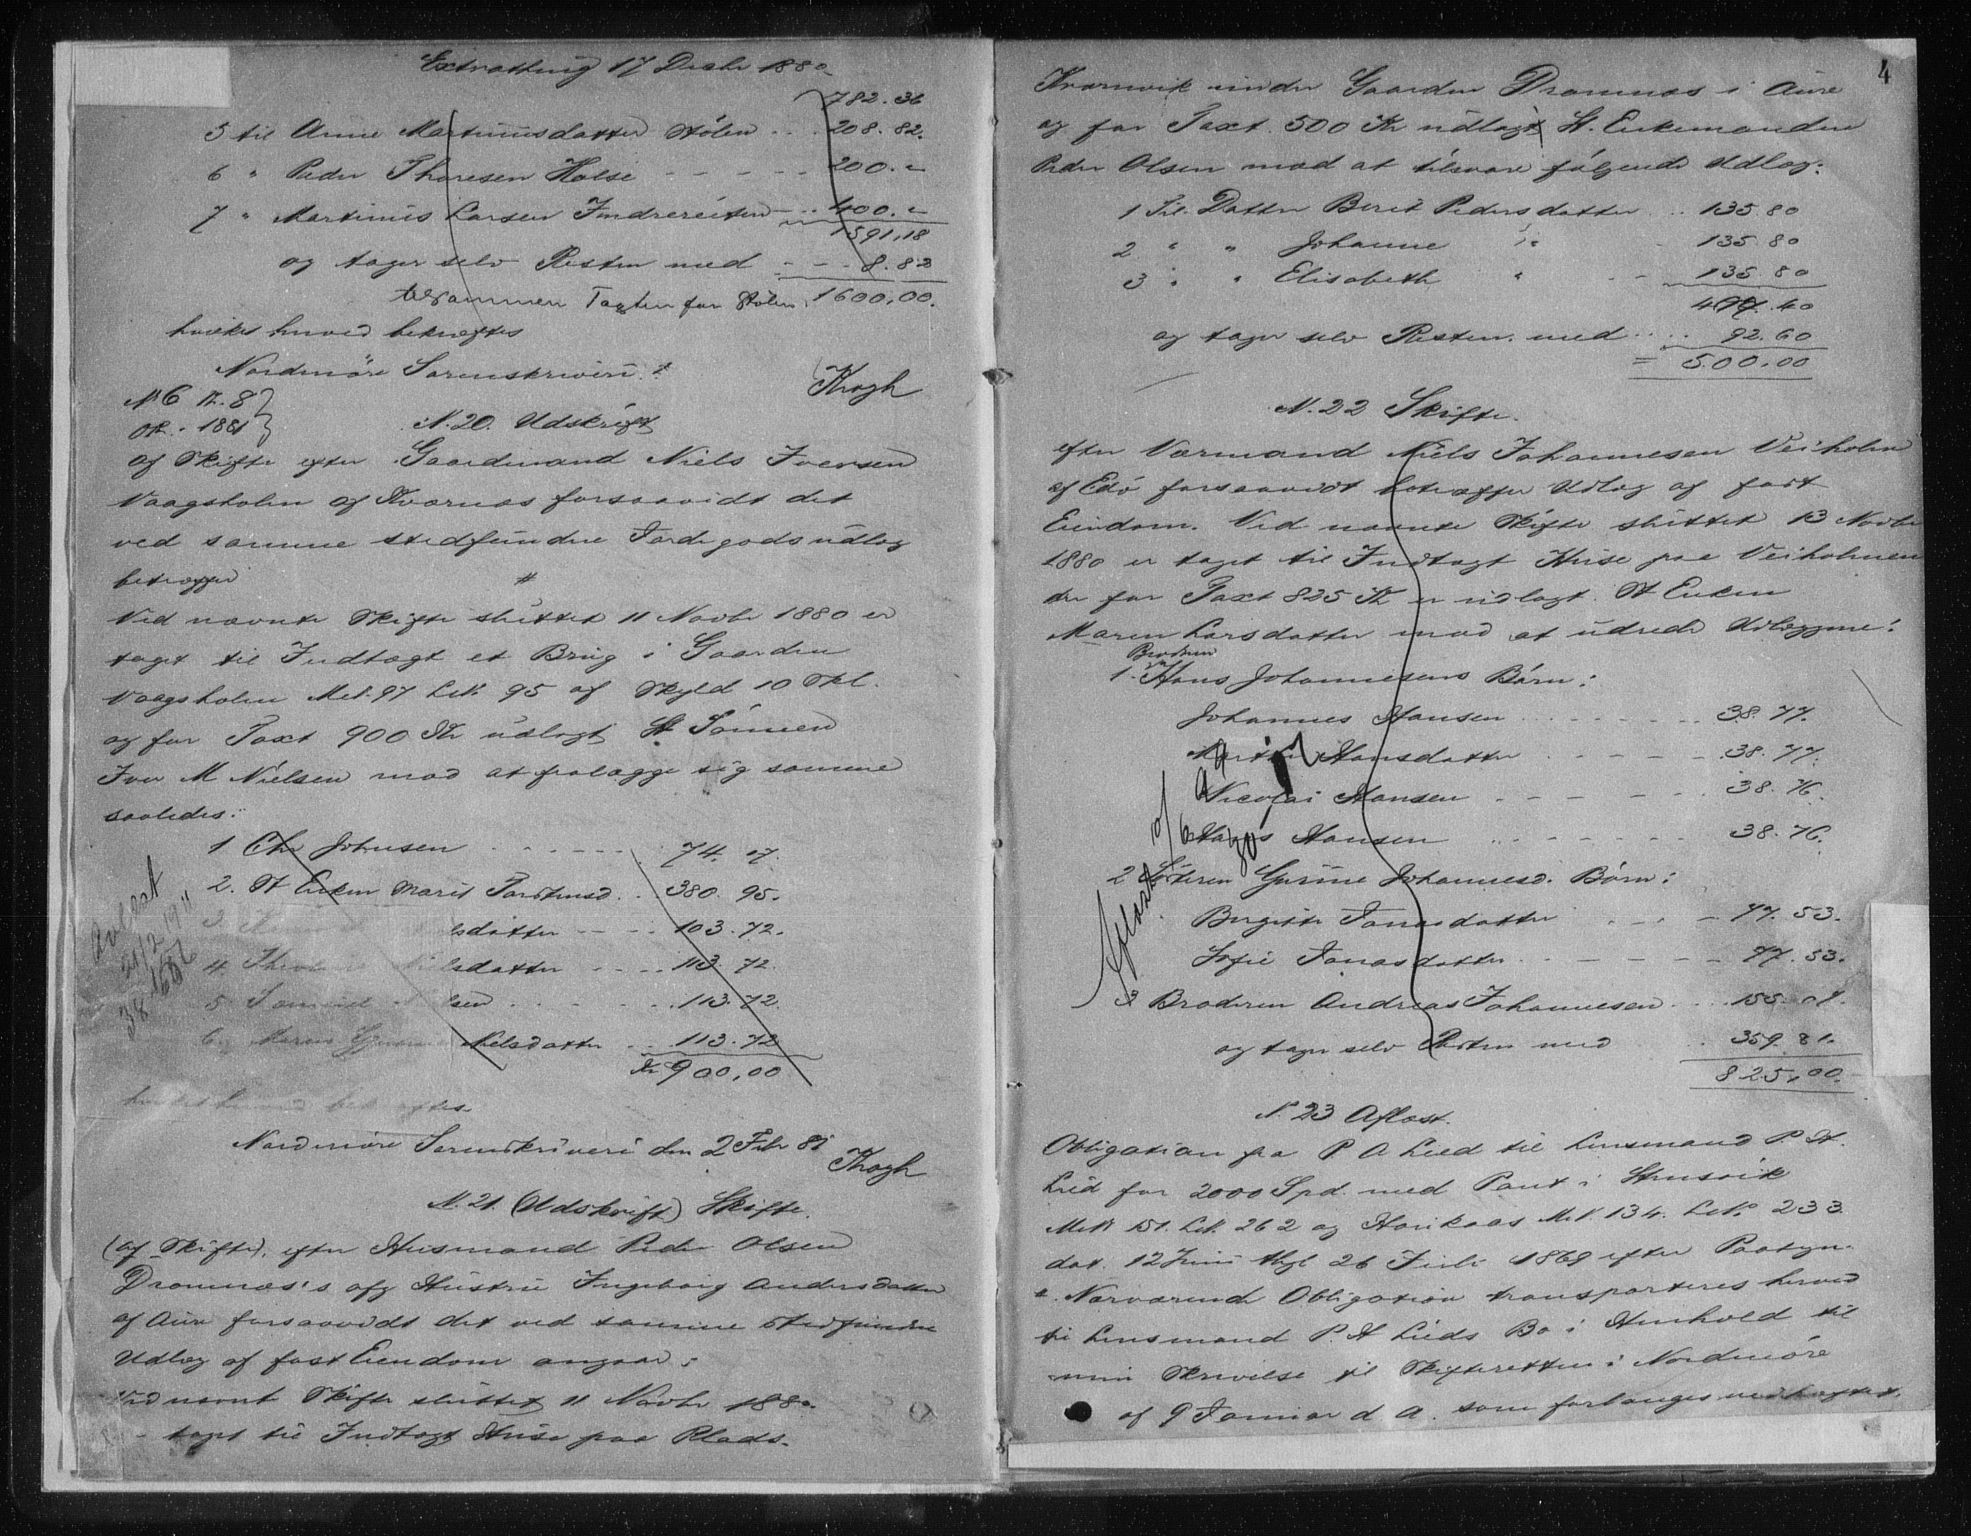 Extrathing 17 Decbr 1880
782.36
5 til Anne Martinusdatter Stölen . . . 208.82.
6 " Peder Thoresen Halse - - - - - 200. "
7 " Martinus Larsen Indrereiten - . . 400. "
1591,18
og tager selv Resten med - - - 8.82
tilsammen Taxten for Stölen. 1600,00.
hvilket herved bekræftes
Nordmöre Sorenskriveri
Krogh
N 6 R. 8
1881
N. 20. Udskrift
af Skifte efter Gaardmand Niels Iversen
Vaagsholm af Kvernæs forsaavidt det
ved samme stedfundne Jordegodsudlæg
betræffer
Ved nævnte Skifte sluttet 11 Novbr 1880 er
taget til Indtægt et Brug i Gaarden
Vaagsholm Mt. 97 L. 95 af Skyld 10 Skl.
og for Taxt 900 Kr udlagt St Sönnen
Iver M Nielsen mod at fralægge sig samme
saaledes:
1 Chr Johnsen . . . . . . 74. 17.
2. St Enken Marit Tarstensd. . . 380. 95.
3 . . . lsdatter - - - - 103. 72.
4 . . . Nielsdatter - - . . 113. 72.
5 . . . lsen . . . . . . 113. 72.
6. Maren . . . Nielsdatter . . 113. 72
Kr 900,00
Avlæst
21/2 1911
38 1686
hvilket herved bekræftes.
Nordmöre Sorenskriveri den 2 Febr 81
Krogh
N. 21. (Udskrift) Skifte.
(af Skifte), efter Husmand Peder Olsen
Dromnæs's afg Hustru Ingeborg Andersdatter
af Aure forsaavidt det ved samme stedfundne
Udlæg af fast Eiendom angaar:
Ved nævnt Skifte sluttet 11 Novbr 1880
taget til Indtægt Huse paa Plads.
4
Kvernvik under Gaarden Dromnæs i Aure
og for Taxt 500 Kr udlagt St. Enkemanden
Peder Olsen mod at tilsvare fölgende Udlæg:
1 Til Datter Berit Pedersdatter . . 135.80
2 " " Johanne " - 135.80
3 " " Elisabeth " - - 135.80
407.40
og tager selv Resten med . . . . 92.60
= 500.00
N. 22 Skifte.
efter Værmand Niels Johannesen Veiholm
af Edö forsaavidt betræffer Udlæg af fast
Eiendom. Ved nævnte Skifte sluttet 13 Novbr
1880 er taget til Indtægt Huse paa Veiholmen
der for Taxt 825 Kr er udlagt St Enken
Maren Larsdatter mod at udrede Udlæggene:
Broderen
1. Hans Johannesens Börn:
Johannes Hansen . . . . . . . 38. 77.
Hansdatter . . - - - - 38. 77.
Nicolai Hansen . . - - - - 38. 76.
Hans Hansen . . - - - - - 38. 76.
2 Sösteren Gurine Johannesd. Börn:
Birgitte Jonasdatter . . . . - 77. 53.
Sofie Jonasdatter . . - - - - 77. 53.
3 Broderen Andreas Johannesen . . . 155. 07.
og tager selv Resten med . 359. 81.
825,00.
Aflæst
N. 23 Aflæst.
Obligation fra P A Lied til Lensmand P. H.
Lied for 2000 Spd. med Pant i Strusvik
Mt 151. L. 262 og Mt. 134. L. 233.
dat. 12 Juni thgl 26 1869 efter
a. Nærværende Obligation transporteres herved
til Lensmand P. H Lieds Bo i Henhold til
min Skrivelse til Skifteretten i Nordmöre
af 9 Januar d A. som forlanges vedhæftet,